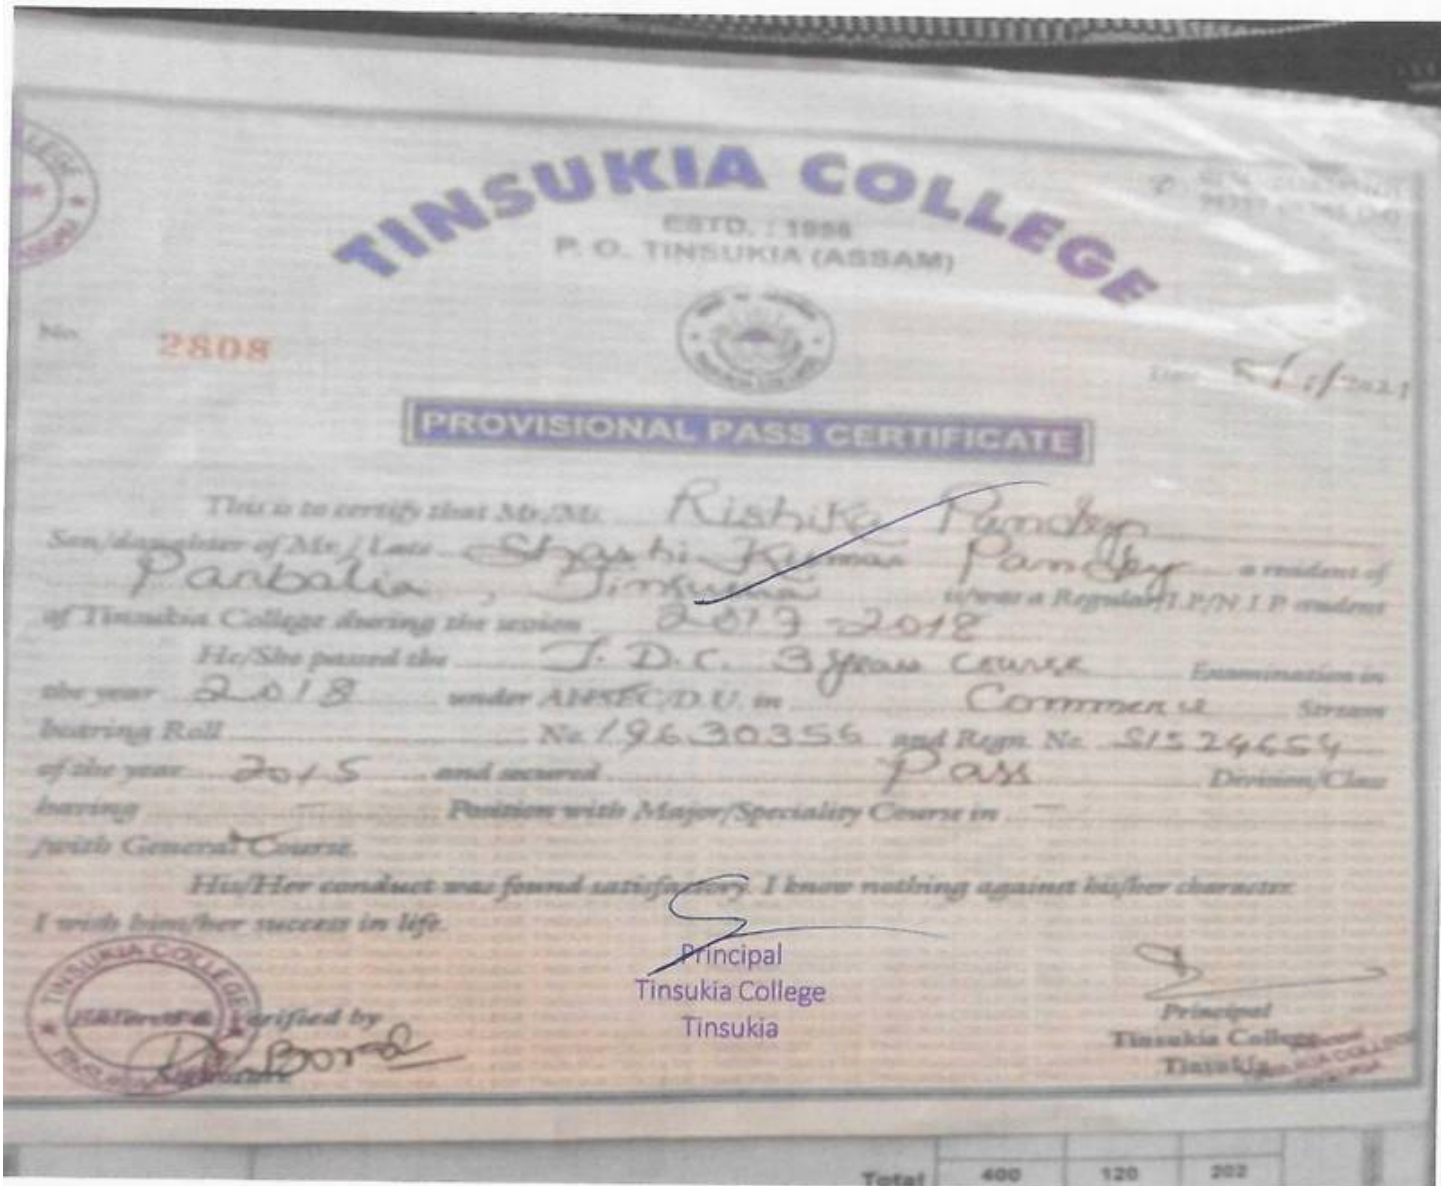 TINSUKIA COLLEGE
ESTD. : 1956
P. O. TINSUKIA (ASSAM)
No. 2808
5/1/2021
PROVISIONAL PASS CERTIFICATE
This is to certify that Mr./Ms. Rishika Pandey
Son/daughter of Mr./Late Shashi Kumar Pandey a resident of
Parbatia, Tinsukia is/was a Regular/I.P/N.I.P. student
of Tinsukia College during the session 2017-2018
He/She passed the T. D. C. 3 years course Examination in
the year 2018 under AHSEC/D.U. in Commerce Stream
bearing Roll No 19630356 and Regn. No S1524654
of the year 2015 and secured Pass Devision/Class
having — Position with Major/Speciality Course in —
/with General Course.
His/Her conduct was found satisfactory. I know nothing against his/her character.
I wish him/her success in life.
Principal
Tinsukia College
Tinsukia
TINSUKIA COLLEGE
verified by
Bora
Signature
Principal
Tinsukia College
Tinsukia
Total 400 120 202